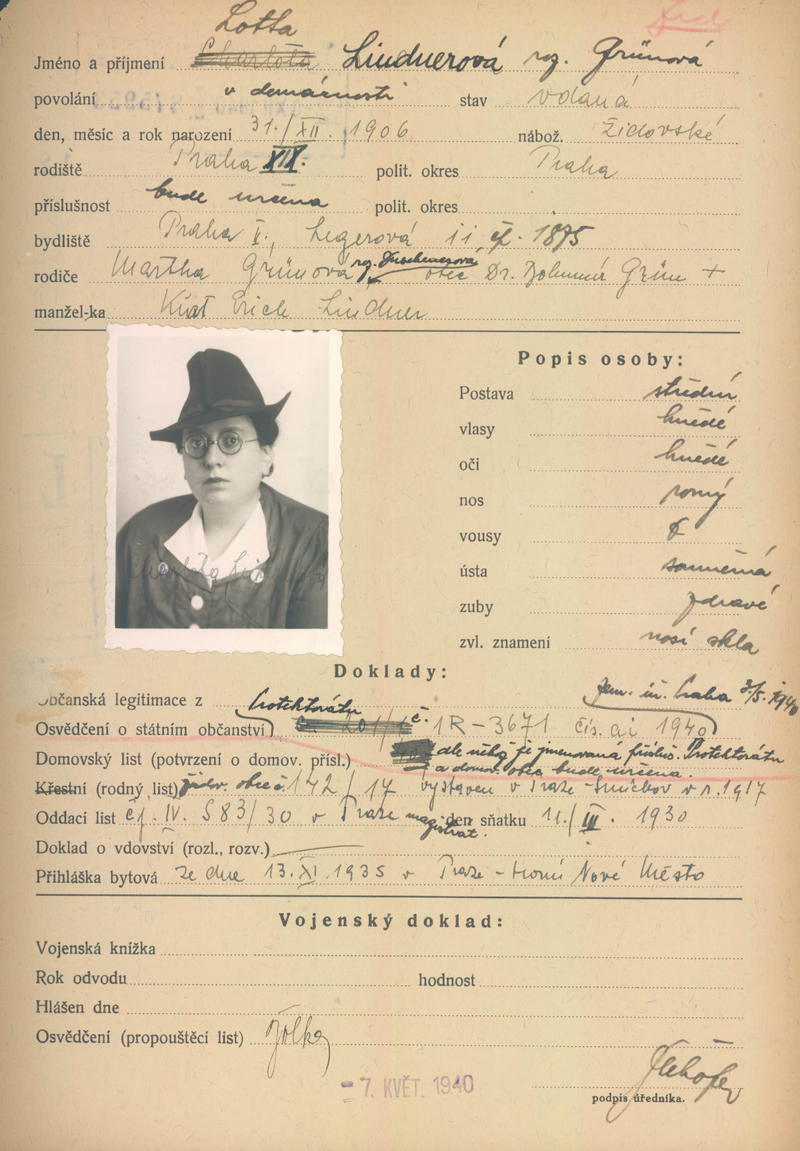 Lotta
Žid
Jméno a příjmení Charlota Lindnerová roz. Grünová
povolání v domácnosti stav vdaná
den, měsíc a rok narození 31./XII. 1906 nábož. židovské
rodiště Praha XII. polit. okres Praha
příslušnost bude určena polit. okres
bydliště Praha II., Legerová 11, čp. 1875
rodiče Martha Grünová roz. otec Dr. Bohumír Grün +
manžel-ka Kurt Erich Lindner
Popis osoby:
Postava střední
vlasy hnědé
oči hnědé
nos rovný
vousy
ústa souměrná
zuby zdravé
zvl. znamení nosí skla
Doklady:
Občanská legitimace z Protektorátu zem. úř. Praha 3/5. 1940
Osvědčení o státním občanství) č. 1R-3671 čís. ai 1940
Domovský list (potvrzení o domov. přísl.) dle něhož je jmenovaná přísluš. Protektorátu
a domov. obec bude určena.
Křestní (rodný list) židv. obec č. 142/17 vystaven v Praze-Smíchov v r. 1917
Oddací list čj. IV. S 83/30 v Praze magistrát. den sňatku 11./III. 1930
Doklad o vdovství (rozl., rozv.)
Přihláška bytová ze dne 13. XI. 1935 v Praze - Nové Město
Vojenský doklad:
Vojenská knížka
Rok odvodu hodnost
Hlášen dne
Osvědčení (propouštěcí list)
- 7. KVĚT. 1940
podpis úředníka.